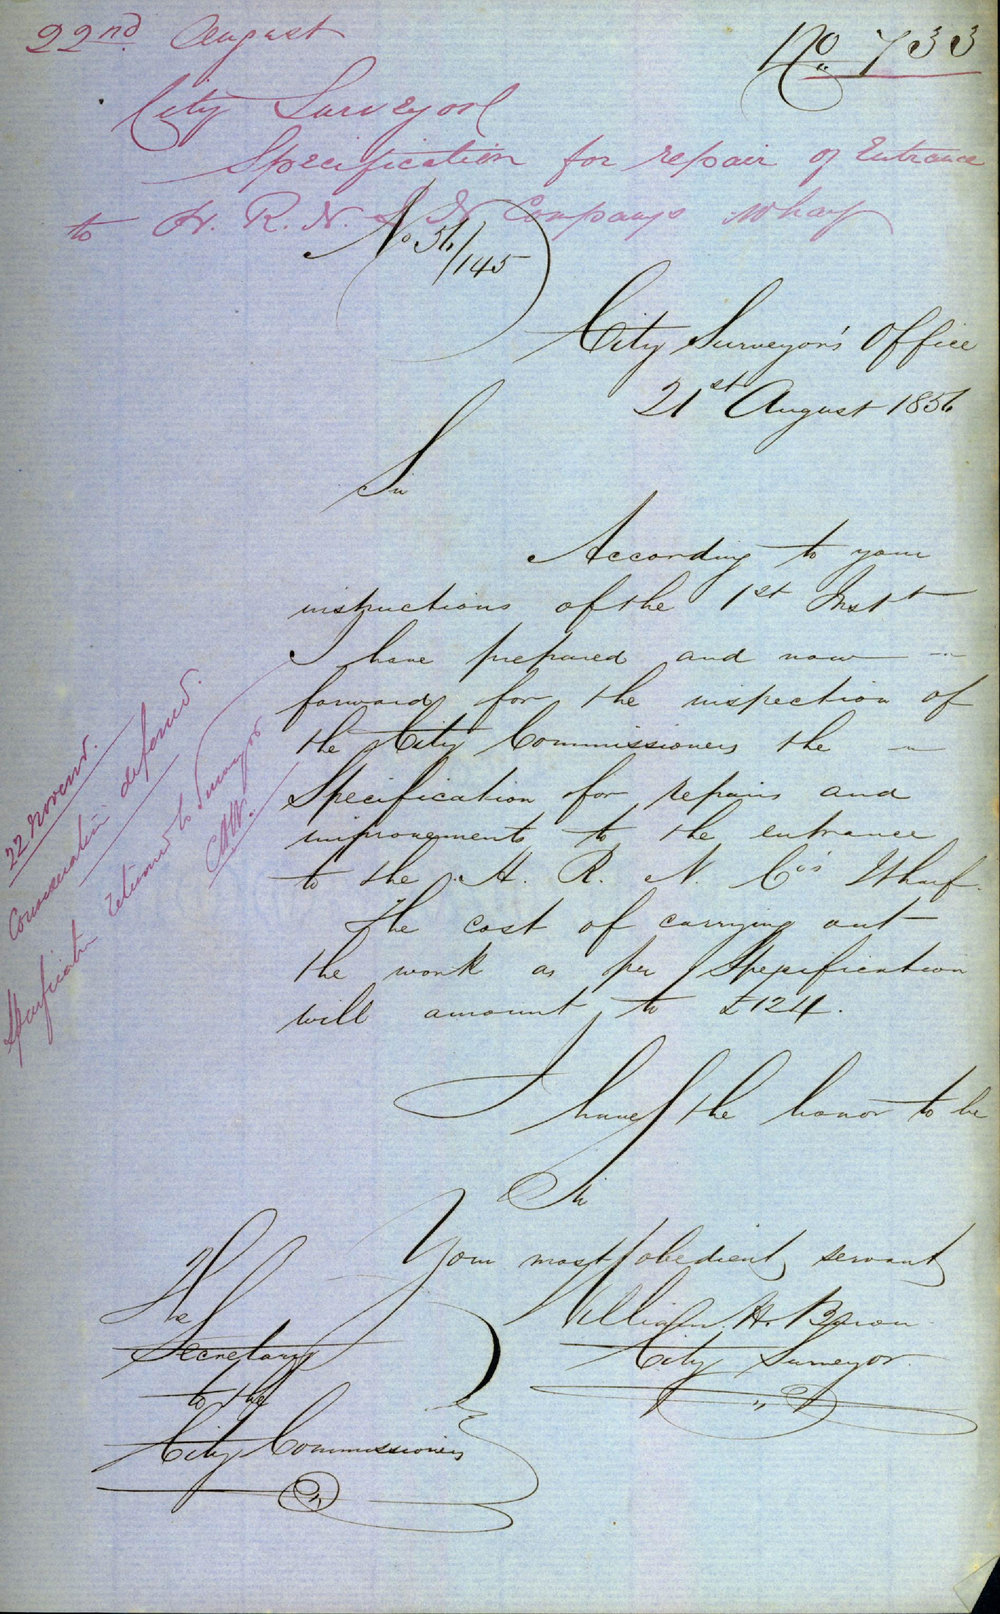 22nd August
No 733
City Surveyor
Specification for repair of Entrance
to H. R. N. S N Companys Wharf
No 56/145
City Surveyor's Office
21st August 1856
Sir
According to your
instructions of the 1st Instt
I have prepared and now
forward for the inspection of
the City Commissioners the
Specification for repairs and
improvements to the entrance
to the H. R. N. Co's Wharf.
The cost of carrying out
the work as per Specification
will amount to £124.
I have the honor to be
Sir
Your most obedient servant
William H.
City Surveyor
The
Secretary
to the
City Commissioners
22
Consideration deferred.
Specification returned to